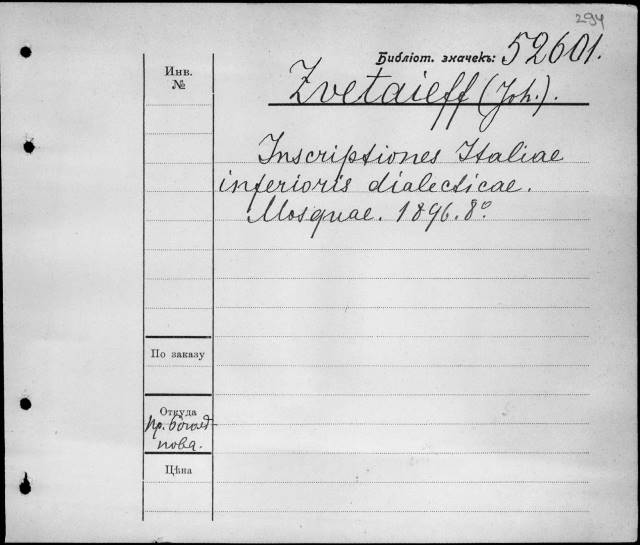 294
Библіот. значекъ: 52601.
Инв.
№
Zvetaieff (Joh.).
Inscriptiones Italiae
inferioris dialecticae.
Mosquae. 1896. 8º
По заказу
Откуда
Пр.
нова.
Цѣна